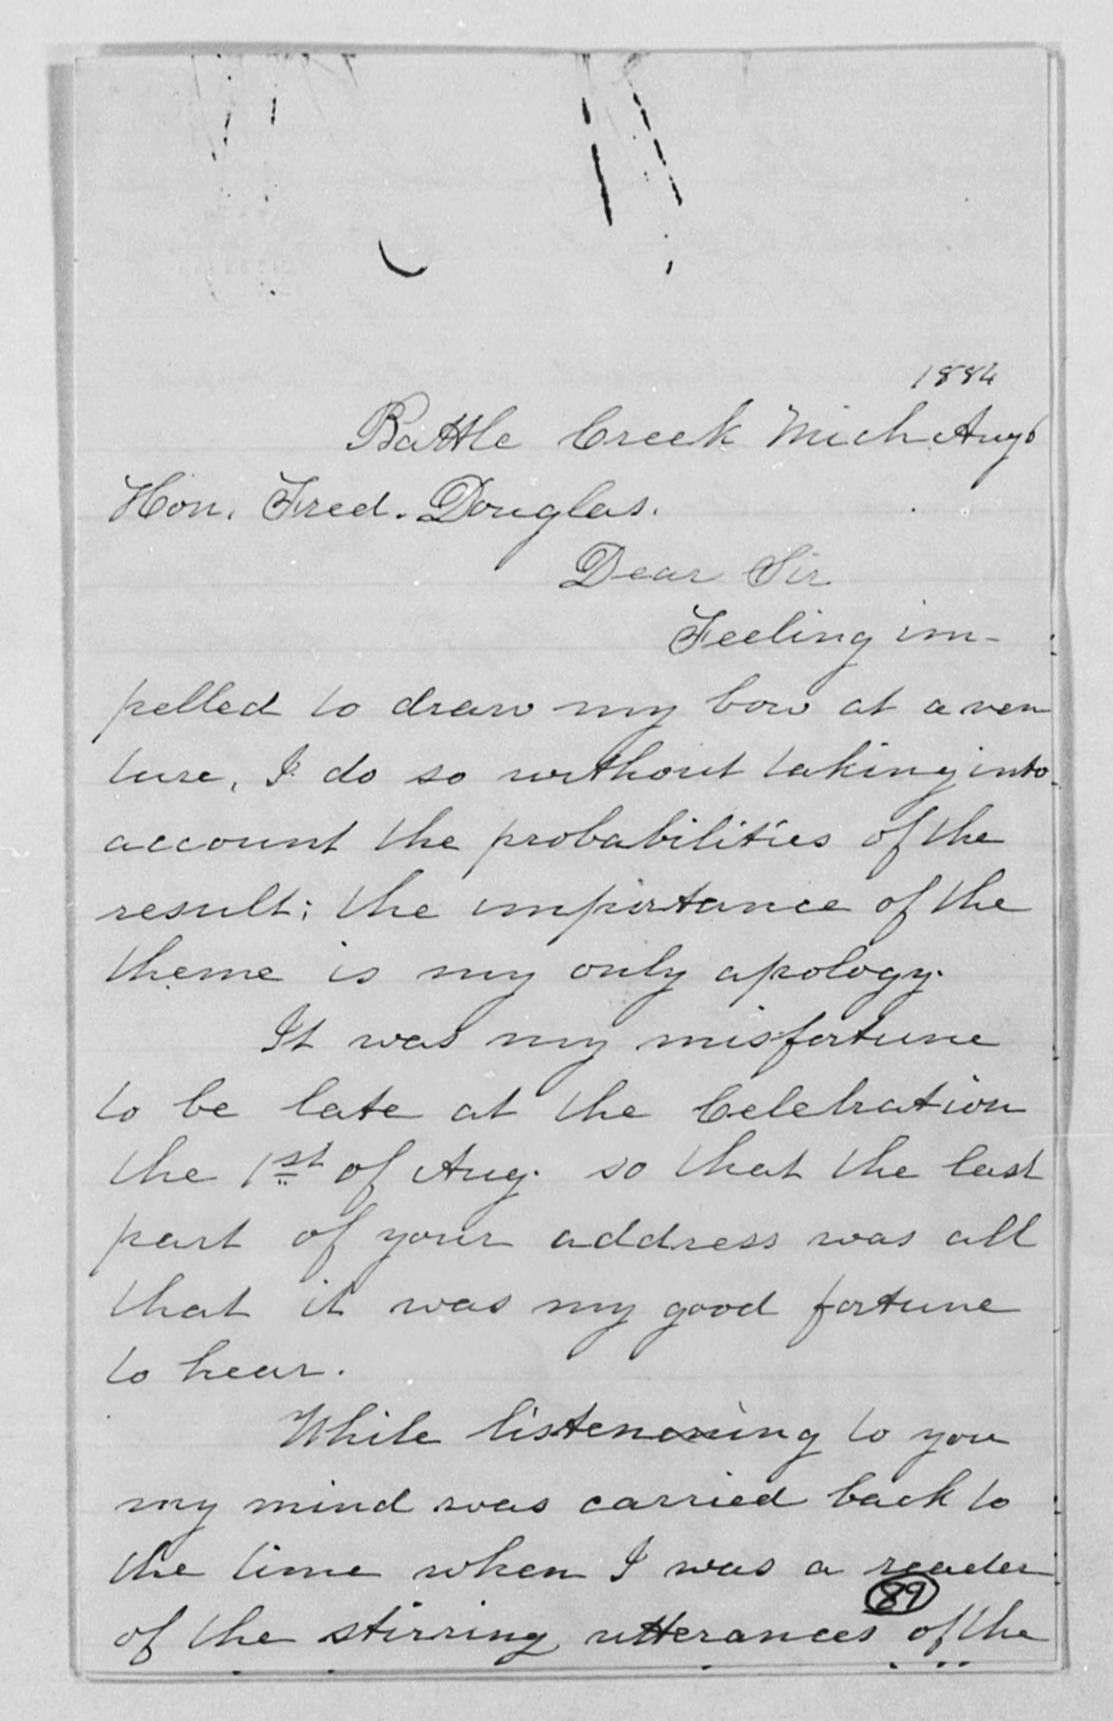 1884
Battle Creek Mich Aug 6
Hon. Fred. Douglas.
Dear Sir
Feeling im-
pelled to draw my bow at a ven
ture, I do so without taking into
account the probabilities of the
result; the importance of the
theme is my only apology.
It was my misfortune
to be late at the Celebration
the 1st of Aug. so that the last
part of your address was all
that it was my good fortune
to hear.
While listening to you
my mind was carried back to
the time when I was a reader
89
of the stirring utterances of the